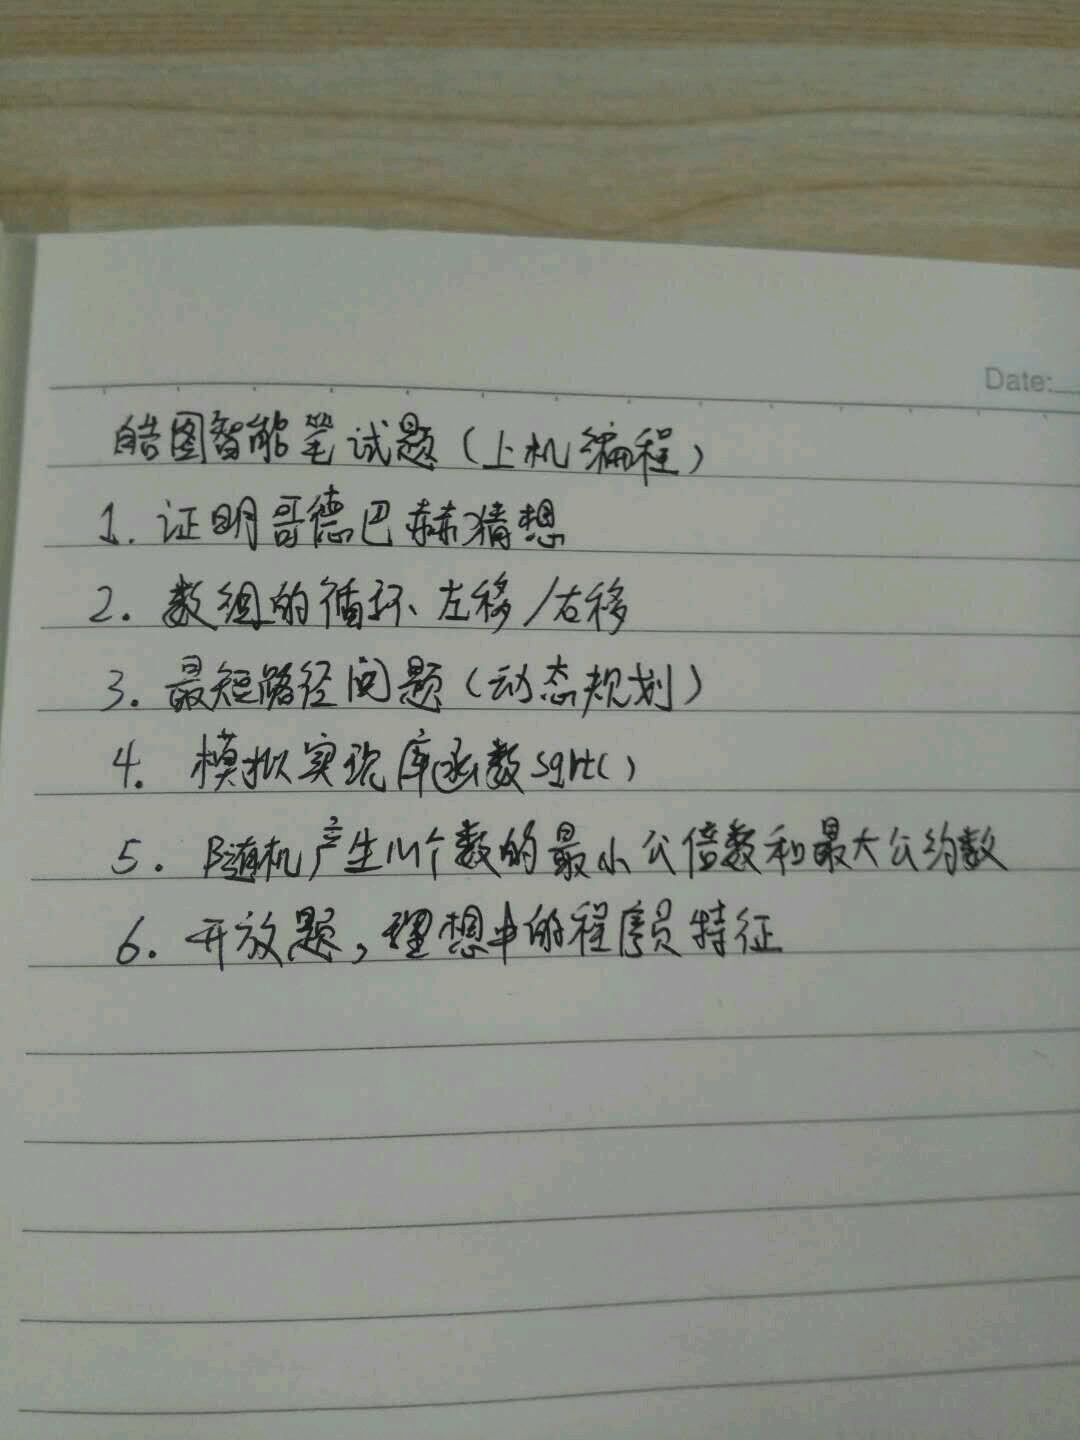 Date:
皓图智能笔试题(上机编程)
1. 证明哥德巴赫猜想
2. 数组的循环左移/右移
3. 最短路径问题(动态规划)
4. 模拟实现库函数sqrt()
5. 随机产生N个数的最小公倍数和最大公约数
6. 开放题,理想中的程序员特征